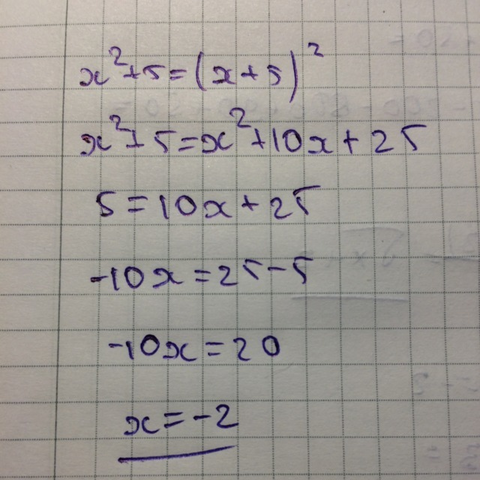 x²+5=(x+5)²
x²+5=x²+10x+25
5=10x+25
-10x=25-5
-10x=20
x=-2